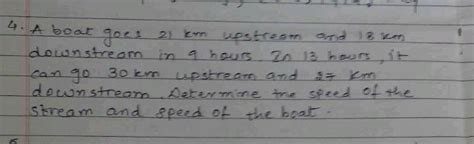 4. A boat goes 21 km upstream and 18 km
downstream in 9 hours. In 13 hours, it
can go 30 km upstream and 27 km
downstream. Determine the speed of the
stream and speed of the boat.